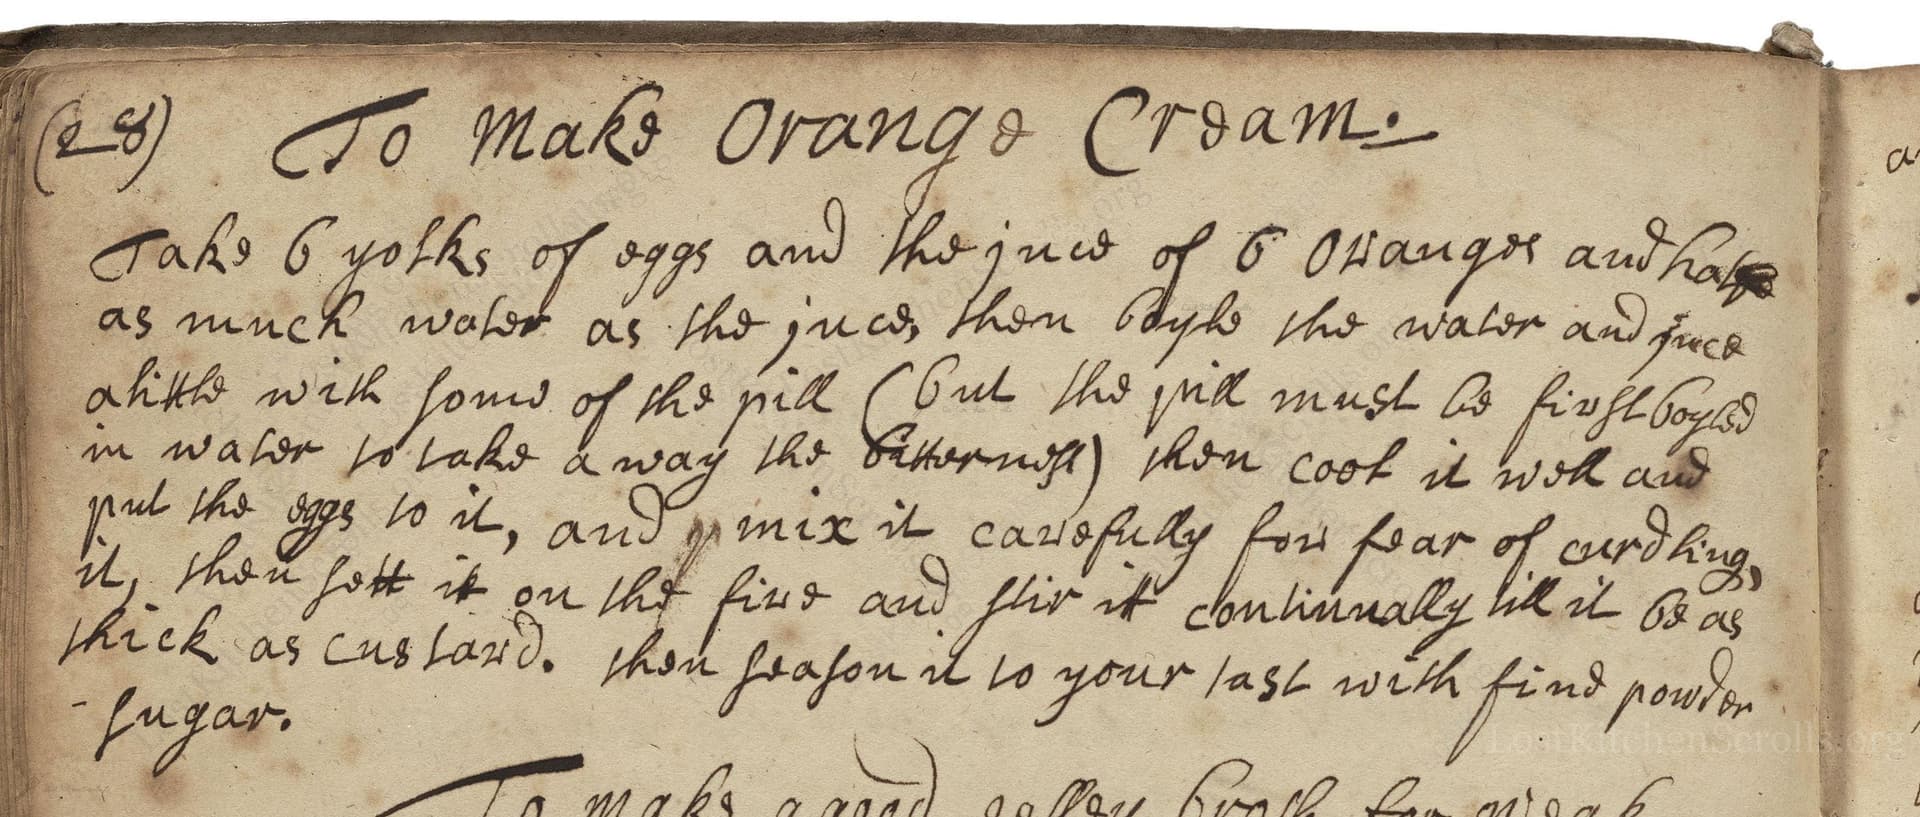 (28) To Make Orange Cream.
Take 6 yolks of eggs and the juce of 6 Oranges and halfe
as much water as the juce, then boyle the water and juce
a little with some of the pill (but the pill must be first boyled
in water to take a way the bitterness) then cool it well and
put the eggs to it, and mix it carefully for fear of curdling,
it, then sett it on the fire and stir it continually till it be as
thick as custard. then season it to your tast with fine powder
- sugar.
To make a good jelley broth for weak
LostKitchenScrolls.org